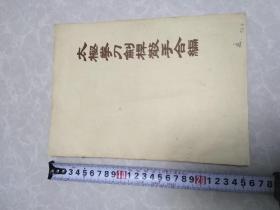 太極拳刀劍桿散手合編
3 4 5 6 7 8 9 1 2 3 4 5 6 7 8 9 2 1 2 3 4 5 6 7 8 9